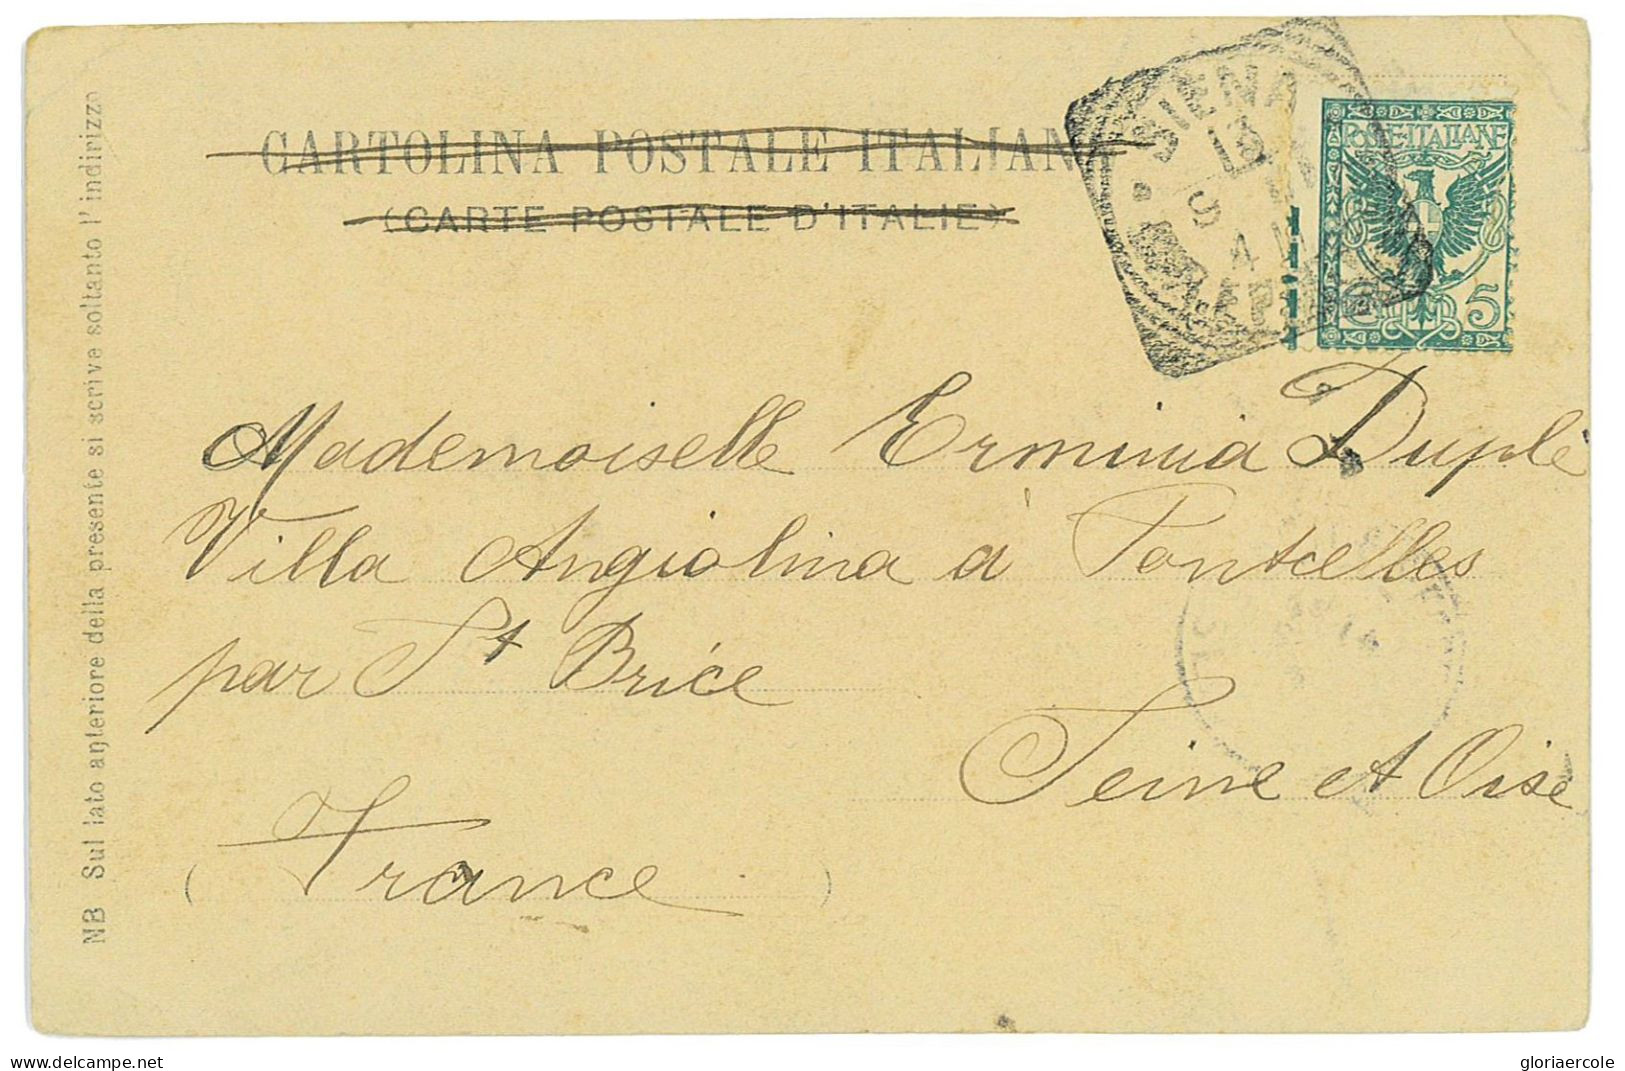 CARTOLINA POSTALE ITALIANA
(CARTE POSTALE D'ITALIE)
SIENA
13
9
POSTE·ITALIANE
5
NB Sul lato anteriore della presente si scrive soltanto l'indirizzo
Mademoiselle Erminia Duplè
Villa Angiolina à Pontcelles
par St Brice
Seine et Oise
(France)
delcampe.net
gloriaercole